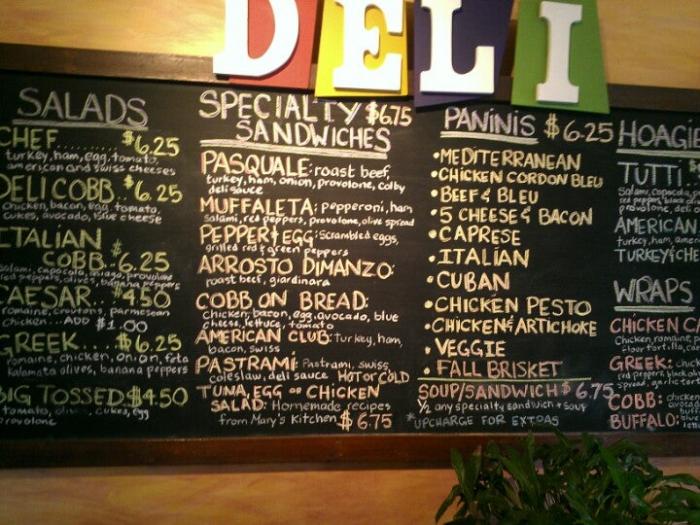 DELI
SALADS
CHEF......... $6.25
turkey, ham, egg, tomato,
american and swiss cheeses
DELI COBB. $6.25
Chicken, bacon, egg, tomato,
cukes, avocado, blue cheese
ITALIAN
COBB.. $6.25
salami, capocola, asiago, provolone
red peppers, olives, banana peppers
CAESAR.. $4.50
romaine, croutons, parmesean
chicken...ADD $1.00
GREEK.... $6.25
romaine, chicken, onion, feta
kalamata olives, banana peppers
BIG TOSSED $4.50
tomato, olives, cukes, egg
provolone
SPECIALTY $6.75
SANDWICHES
PASQUALE: roast beef,
turkey, ham, onion, provolone, colby
deli sauce
MUFFALETA: pepperoni, ham
salami, red peppers, provolone, olive spread
PEPPER & EGG: Scrambled eggs,
grilled red & green peppers
ARROSTO DIMANZO:
roast beef, giardinara
COBB ON BREAD:
Chicken, bacon, egg, avocado, blue
cheese, lettuce, tomato
AMERICAN CLUB: turkey, ham,
bacon, swiss
PASTRAMI: Pastrami, swiss,
coleslaw, deli sauce HOT or COLD
TUNA, EGG OR CHICKEN
SALAD: Homemade recipes
from Mary's Kitchen $6.75
PANINIS $6.25
• MEDITERRANEAN
• CHICKEN CORDON BLEU
• BEEF & BLEU
• 5 CHEESE & BACON
• CAPRESE
• ITALIAN
• CUBAN
• CHICKEN PESTO
• CHICKEN & ARTICHOKE
• VEGGIE
• FALL BRISKET
SOUP/SANDWICH $6.75
½ any specialty sandwich + soup
*UPCHARGE FOR EXTRAS
HOAGIE
TUTTI $
Salami, capocola,
red peppers, black
provolone, deli
AMERICAN
turkey, ham,
TURKEY & CHE
WRAPS
CHICKEN CA
Chicken, romaine,
flour tortilla,
GREEK:
red pepper, black
spread,
COBB: chicken
avocado
BUFFALO: